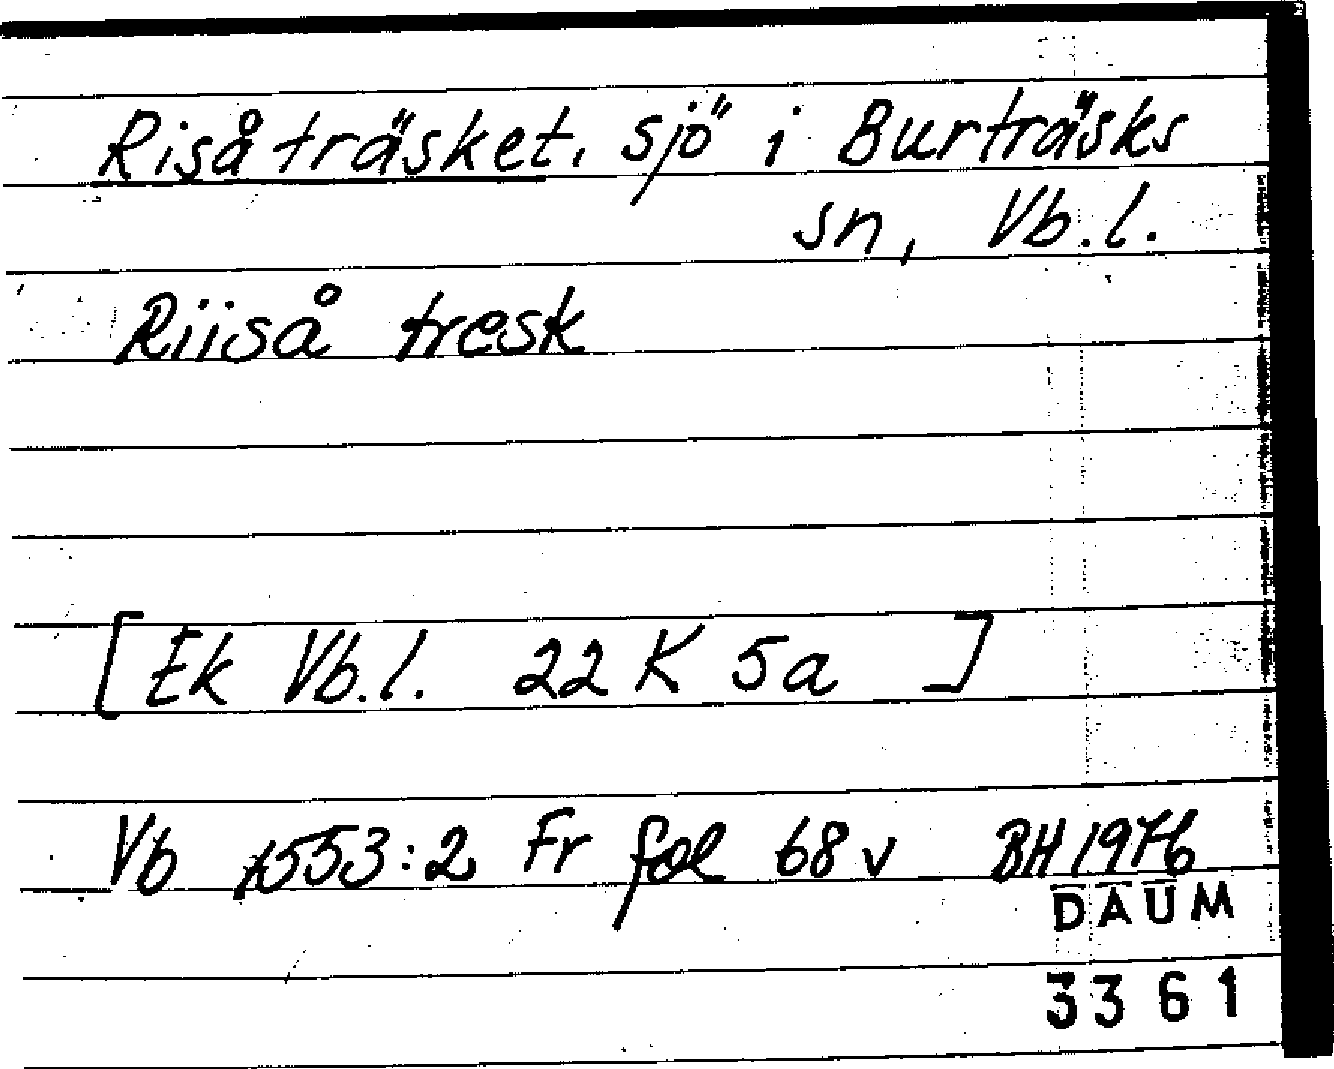 Risåträsket, sjö i Burträsks
sn, Vb.l.
Riiså tresk
[Ek Vb.l. 22 K 5a ]
Vb 1553:2 Fr fol 68 v BH 1976
DAUM
3361